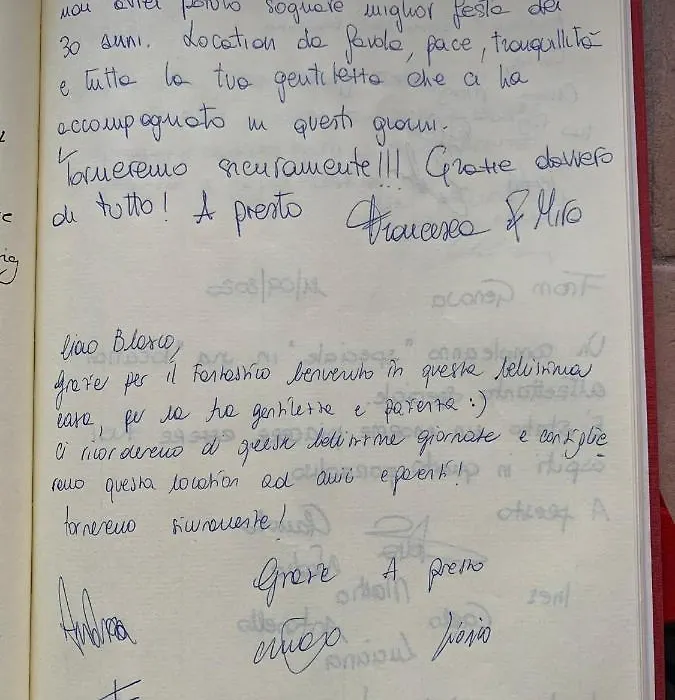 non avrei potuto sognare miglior festa dei
30 anni. Location da favola, pace, tranquillità
e tutta la tua gentilezza che ci ha
accompagnato in questi giorni.
Torneremo sicuramente!!! Grazie davvero
di tutto! A presto Francesca & Miro
Ciao Blasco,
grazie per il fantastico benvenuto in questa bellissima
casa, per la tua gentilezza e pazienza :)
Ci ricorderemo di queste bellissime giornate e consiglie
remo questa location ad amici e parenti!
torneremo sicuramente!
Grazie A presto
Andrea
From Genova 11/09/2020
A presto
Ines
Luciana